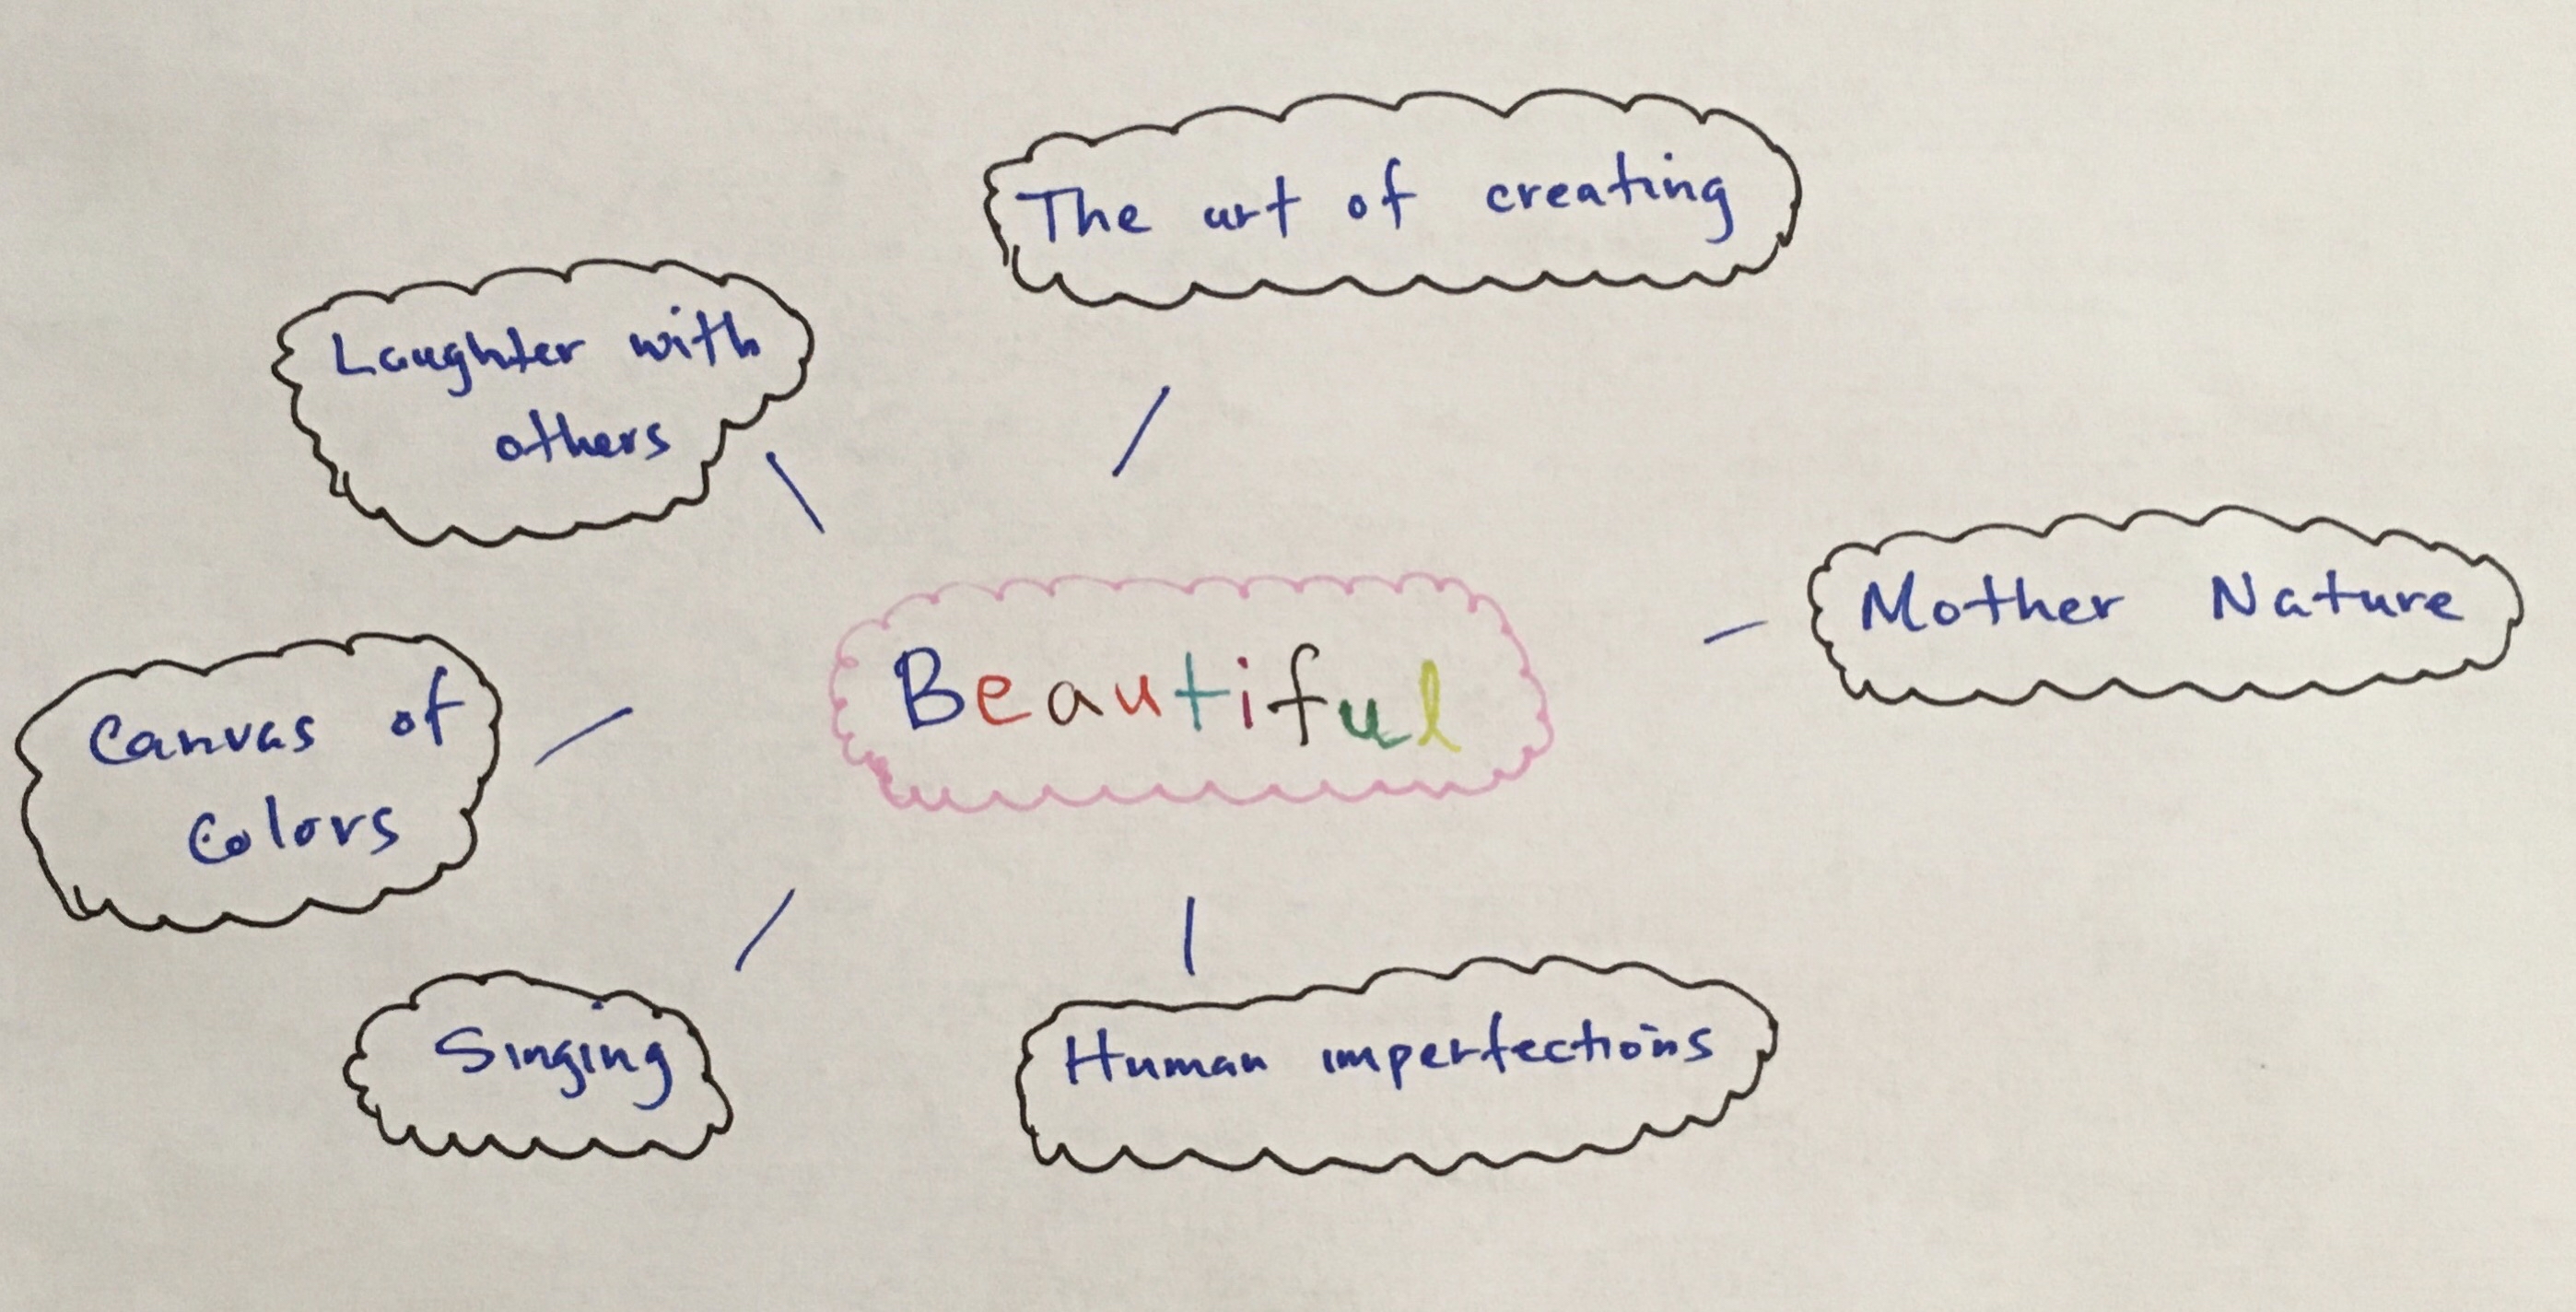 The art of creating
Laughter with
others
Mother Nature
Beautiful
Canvas of
Colors
Singing
Human imperfections